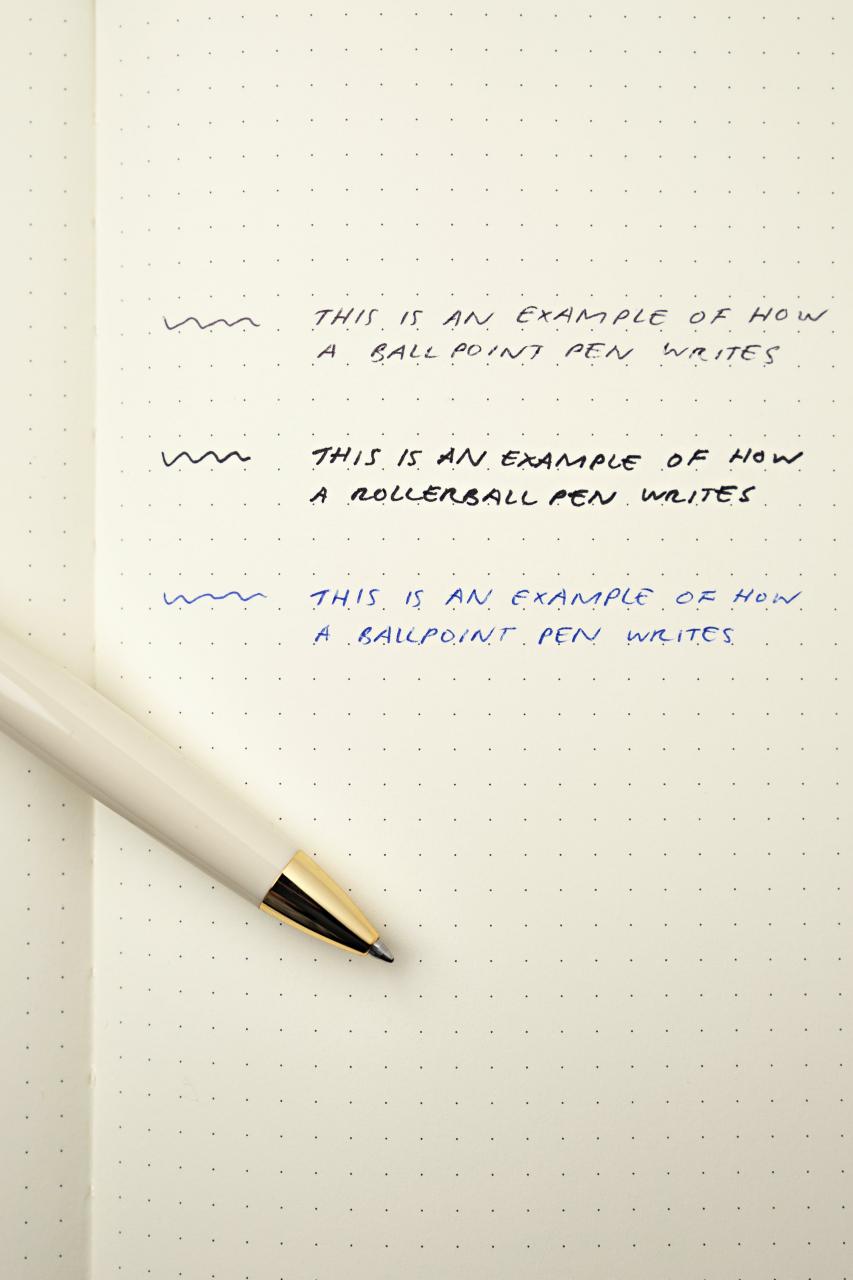 THIS IS AN EXAMPLE OF HOW
A BALLPOINT PEN WRITES
THIS IS AN EXAMPLE OF HOW
A ROLLERBALL PEN WRITES
THIS IS AN EXAMPLE OF HOW
A BALLPOINT PEN WRITES